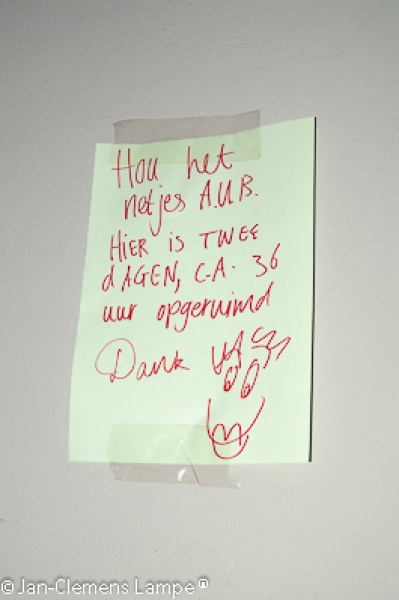 Hou het
netjes A.U.B.
HiER is TWEE
dAGEN, C.A. 36
uur opgeruimd
Dank
© Jan-Clemens Lampe